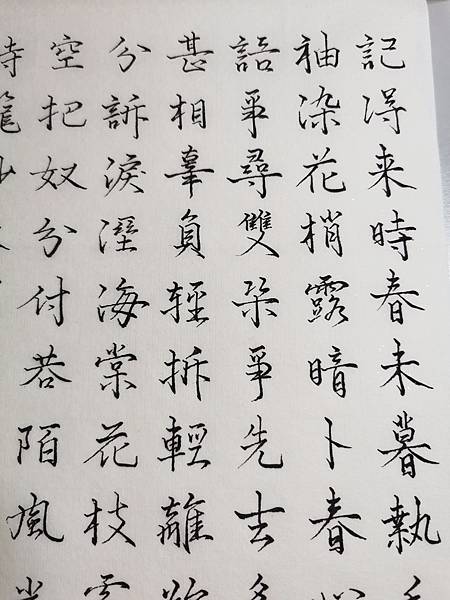 記得来時春未暮執
袖染花梢露暗卜春
語爭尋雙朶爭先去
甚相辜負輕拆輕離
分訴淚溼海棠花枝
空把奴分付陌風